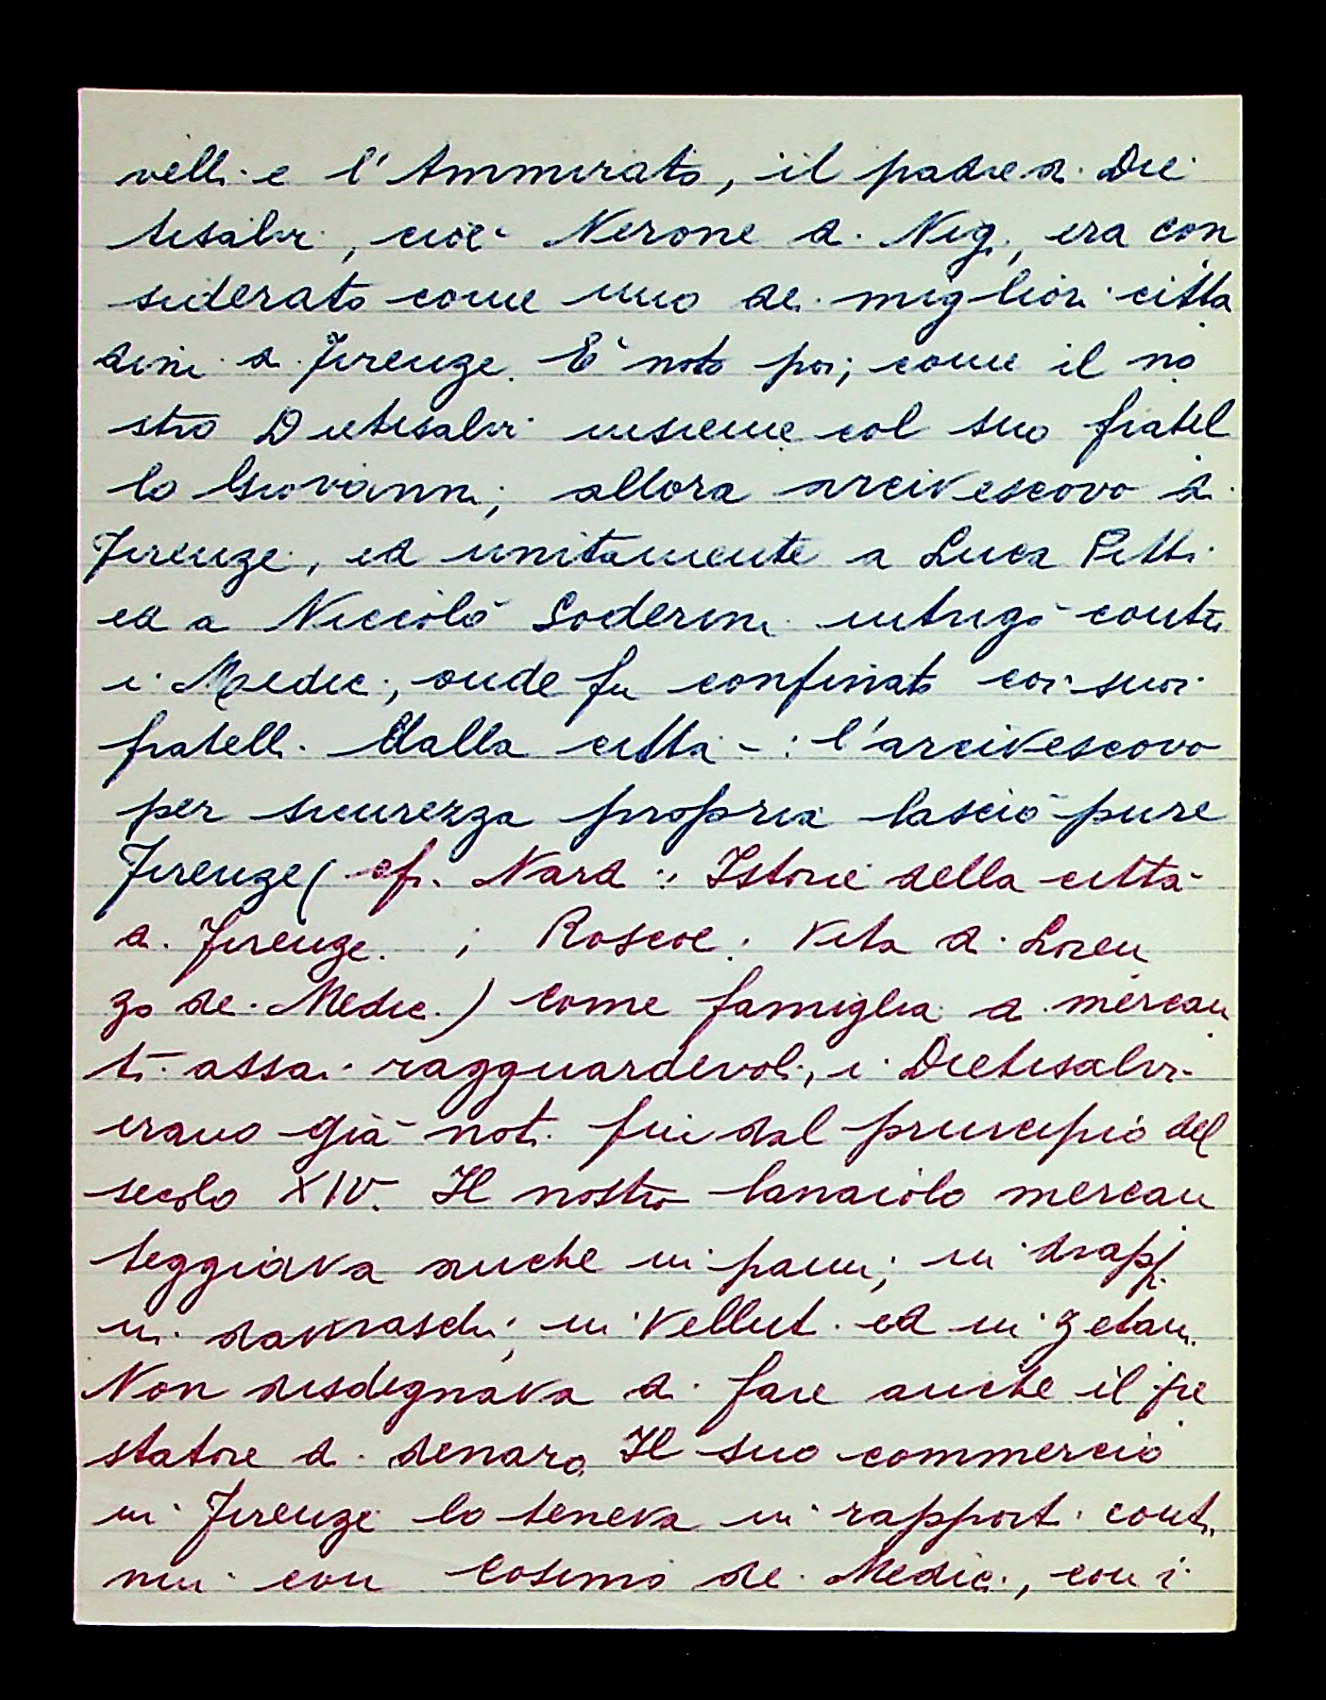 velli e l'Ammirato, il padre di Die
tisalvi, cioè Nerone di Nigi, era con
siderato come uno dei migliori citta
dini di Firenze. È noto poi, come il no
stro Dietisalvi insieme col suo fratel
lo Giovanni, allora arcivescovo di
Firenze, ed unitamente a Luca Pitti
ed a Niccolò Soderini intrigò contro
i Medici, onde fu confinato coi suoi
fratelli dalla città: l'arcivescovo
per sicurezza propria lasciò pure
Firenze (cfr. Nardi: Istorie della città
di Firenze; Roscoe: Vita di Loren
zo dei Medici.) Come famiglia di mercan
ti assai ragguardevoli, i Dietisalvi
erano già noti fin dal principio del
secolo XIV. Il nostro lanaiolo mercan
teggiava anche in panni, in drappi
in damaschi, in velluti ed in zetani.
Non disdegnava di fare anche il pre
statore di denaro. Il suo commercio
in Firenze lo teneva in rapporti conti
nui con Cosimo dei Medici, con i